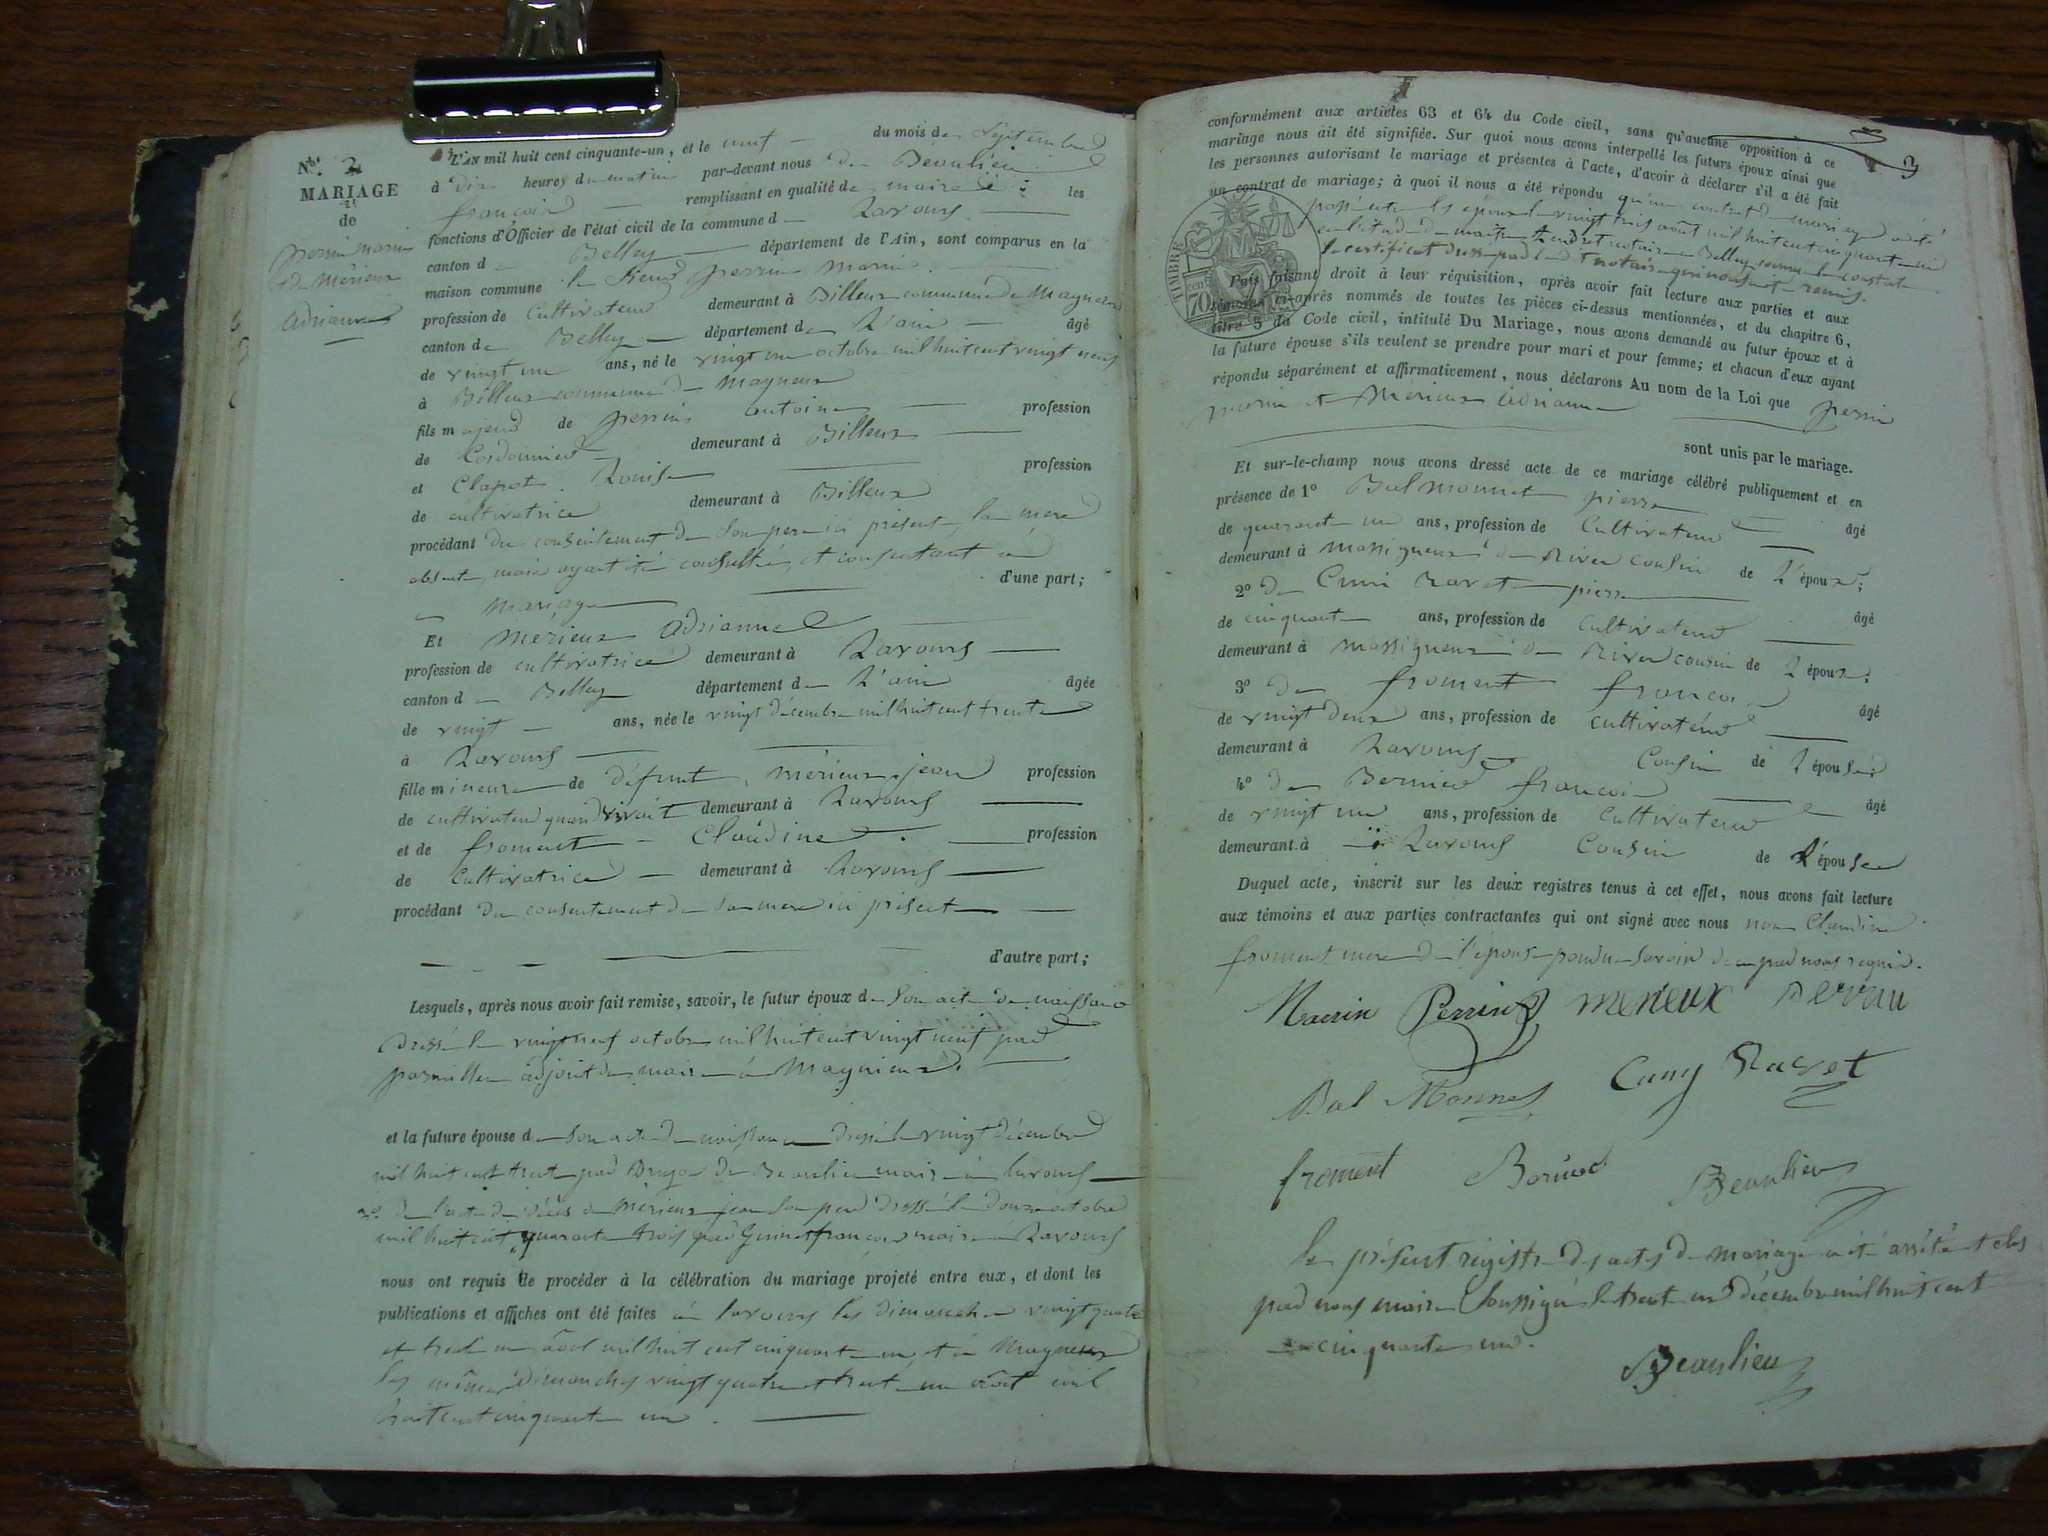 N.º 2
MARIAGE
de
perrin marin
et de Mérieux
adrianne
L'AN mil huit cent cinquante-un, et le neuf du mois de Septembre
à dix heures du matin par-devant nous de Beaulieu
francois remplissant en qualité de maire les
fonctions d'Officier de l'état civil de la commune d Lavours
canton d Belley département de l'Ain, sont comparus en la
maison commune le Sieur perrin marin
profession de Cultivateur demeurant à Billeux commune de Magnieu
canton de Belley département de L'ain âgé
de vingt un ans, né le vingt un octobre mil huit cent vingt neuf
à Billeux commune de Magnieu
fils majeur de perrin antoine profession
de Cordonnier demeurant à Billeux
et Clapot Louise profession
de cultivatrice demeurant à Billeux
procédant du consentement de Son pere ici présent, la mere
absente, mais ayant été consultée, et consentant au
mariage d'une part;
Et Mérieux adrianne
profession de cultivatrice demeurant à Lavours
canton de Belley département de L'ain âgée
de vingt ans, née le vingt décembre mil huit cent trente
à Lavours
fille mineure de défunt mérieux jean profession
de cultivateur quand vivait demeurant à Lavours
et de froment Claudine profession
de Cultivatrice demeurant à Lavours
procédant du consentement de sa mere ici présente
d'autre part;
Lesquels, après nous avoir fait remise, savoir, le futur époux de Son acte de naissance
dressé le vingt neuf octobre mil huit cent vingt neuf par
adjoint du maire à Magnieu.
et la future épouse de Son acte de naissance dressé le vingt décembre
mil huit cent trente par de Beaulieu maire à lavours
2º de l'acte de décès de Mérieux jean Son pere dressé le douze octobre
mil huit cent quarante trois par Guinet francois maire à Lavours
nous ont requis de procéder à la célébration du mariage projeté entre eux, et dont les
publications et affiches ont été faites à lavours les dimanches vingt quatre
et trente un août mil huit cent cinquante un, et à Magnieu
les mêmes dimanches vingt quatre et trente un août mil
huit cent cinquante un.
3
conformément aux articles 63 et 64 du Code civil, sans qu'aucune opposition à ce
mariage nous ait été signifiée. Sur quoi nous avons interpellé les futurs époux ainsi que
les personnes autorisant le mariage et présentes à l'acte, d'avoir à déclarer s'il a été fait
un contrat de mariage; à quoi il nous a été répondu qu'un contrat de mariage a été
passé entre les époux le vingt trois août mil huit cent cinquante un
en l'étude de maitre notaire a Belley comme le constate
le certificat dressé par le d. notaire qui nous est remis.
TIMBRE
70
Puis faisant droit à leur réquisition, après avoir fait lecture aux parties et aux
témoins ci-après nommés de toutes les pièces ci-dessus mentionnées, et du chapitre 6,
titre 5 du Code civil, intitulé Du Mariage, nous avons demandé au futur époux et à
la future épouse s'ils veulent se prendre pour mari et pour femme; et chacun d'eux ayant
répondu séparément et affirmativement, nous déclarons Au nom de la Loi que perrin
marin et Mérieux adrianne
sont unis par le mariage.
Et sur-le-champ nous avons dressé acte de ce mariage célébré publiquement et en
présence de 1º Balmonnet pierre
de quarante un ans, profession de Cultivateur âgé
demeurant à massigneux de River cousin de L'époux;
2º de Cuni Ravet pierre
de cinquante ans, profession de cultivateur âgé
demeurant à massigneux de River cousin de L'époux;
3º de froment francois
de vingt deux ans, profession de cultivateur âgé
demeurant à Lavours Cousin de L'épouse
4º de Bernier francois
de vingt un ans, profession de cultivateur âgé
demeurant à Lavours Cousin de L'épouse
Duquel acte, inscrit sur les deux registres tenus à cet effet, nous avons fait lecture
aux témoins et aux parties contractantes qui ont signé avec nous non Claudine
froment mere de l'épouse pour ne savoir de ce par nous requis.
Marin Perrin merieux
Bal Monnet Cuny Ravet
froment Beaulieu
Le présent registre des actes de mariage a été arrêté et clos
par nous maire soussigné le trente un décembre mil huit cent
cinquante un.
Beaulieu